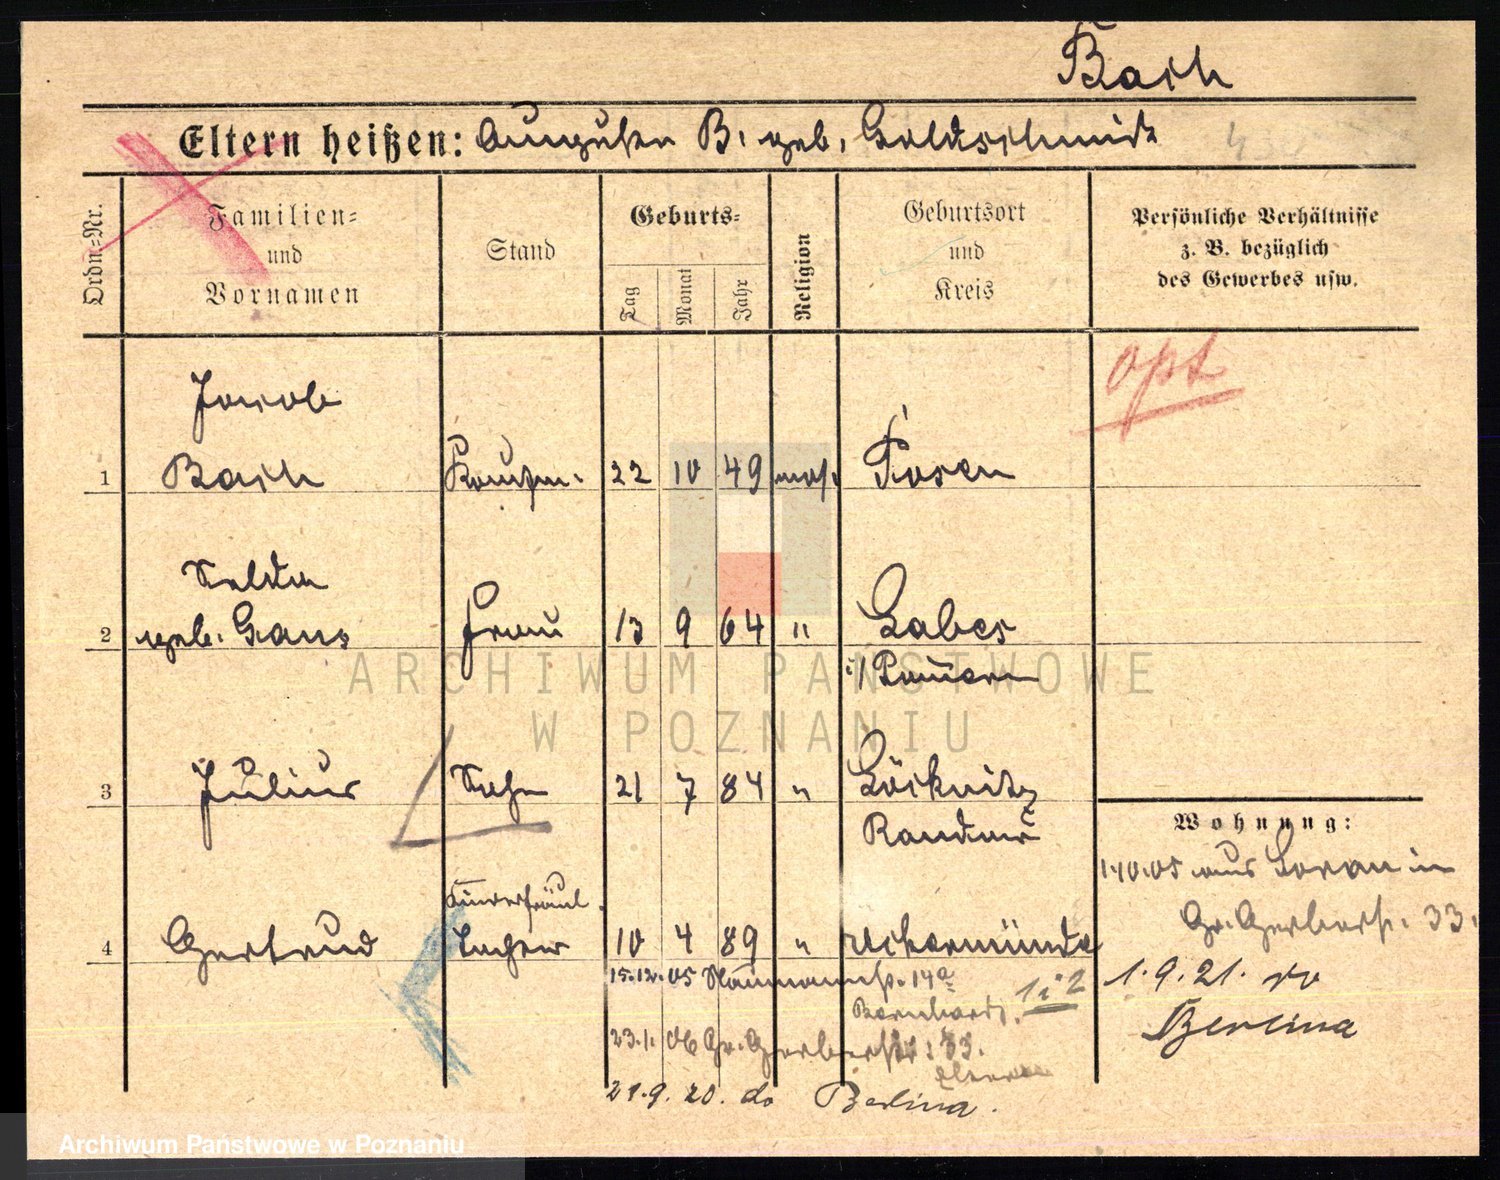 Bach
Eltern heißen: Auguste B. geb. Goldschmidt
Ordn.-Nr.
Familien-
und
Vornamen
Stand
Geburts-
Tag
Monat
Jahr
Religion
Geburtsort
und
Kreis
Persönliche Verhältnisse
z. B. bezüglich
des Gewerbes usw.
opt
Jacob
1 Bach Kaufm. 22 10 49 mos. Posen
2 geb. Gans Frau 13 9 64 " Labes
i/ Pommern
ARCHIWUM PAŃSTWOWE
W POZNANIU
3 Julius Sohn 21 7 84 " Löcknitz
Randow
Wohnung:
1.10.05 aus
Gr. Gerberstr. 33.
4 Gertrud Tochter 10 4 89 " Uckermünde
15.12.05 Naumannstr. 14a
Bernhard. 1 i 2
23.1. 06 Gr. Gerberstr. 33.
Eltern
21.9.20. do Berlina.
1.9.21. do
Berlina
Archiwum Państwowe w Poznaniu